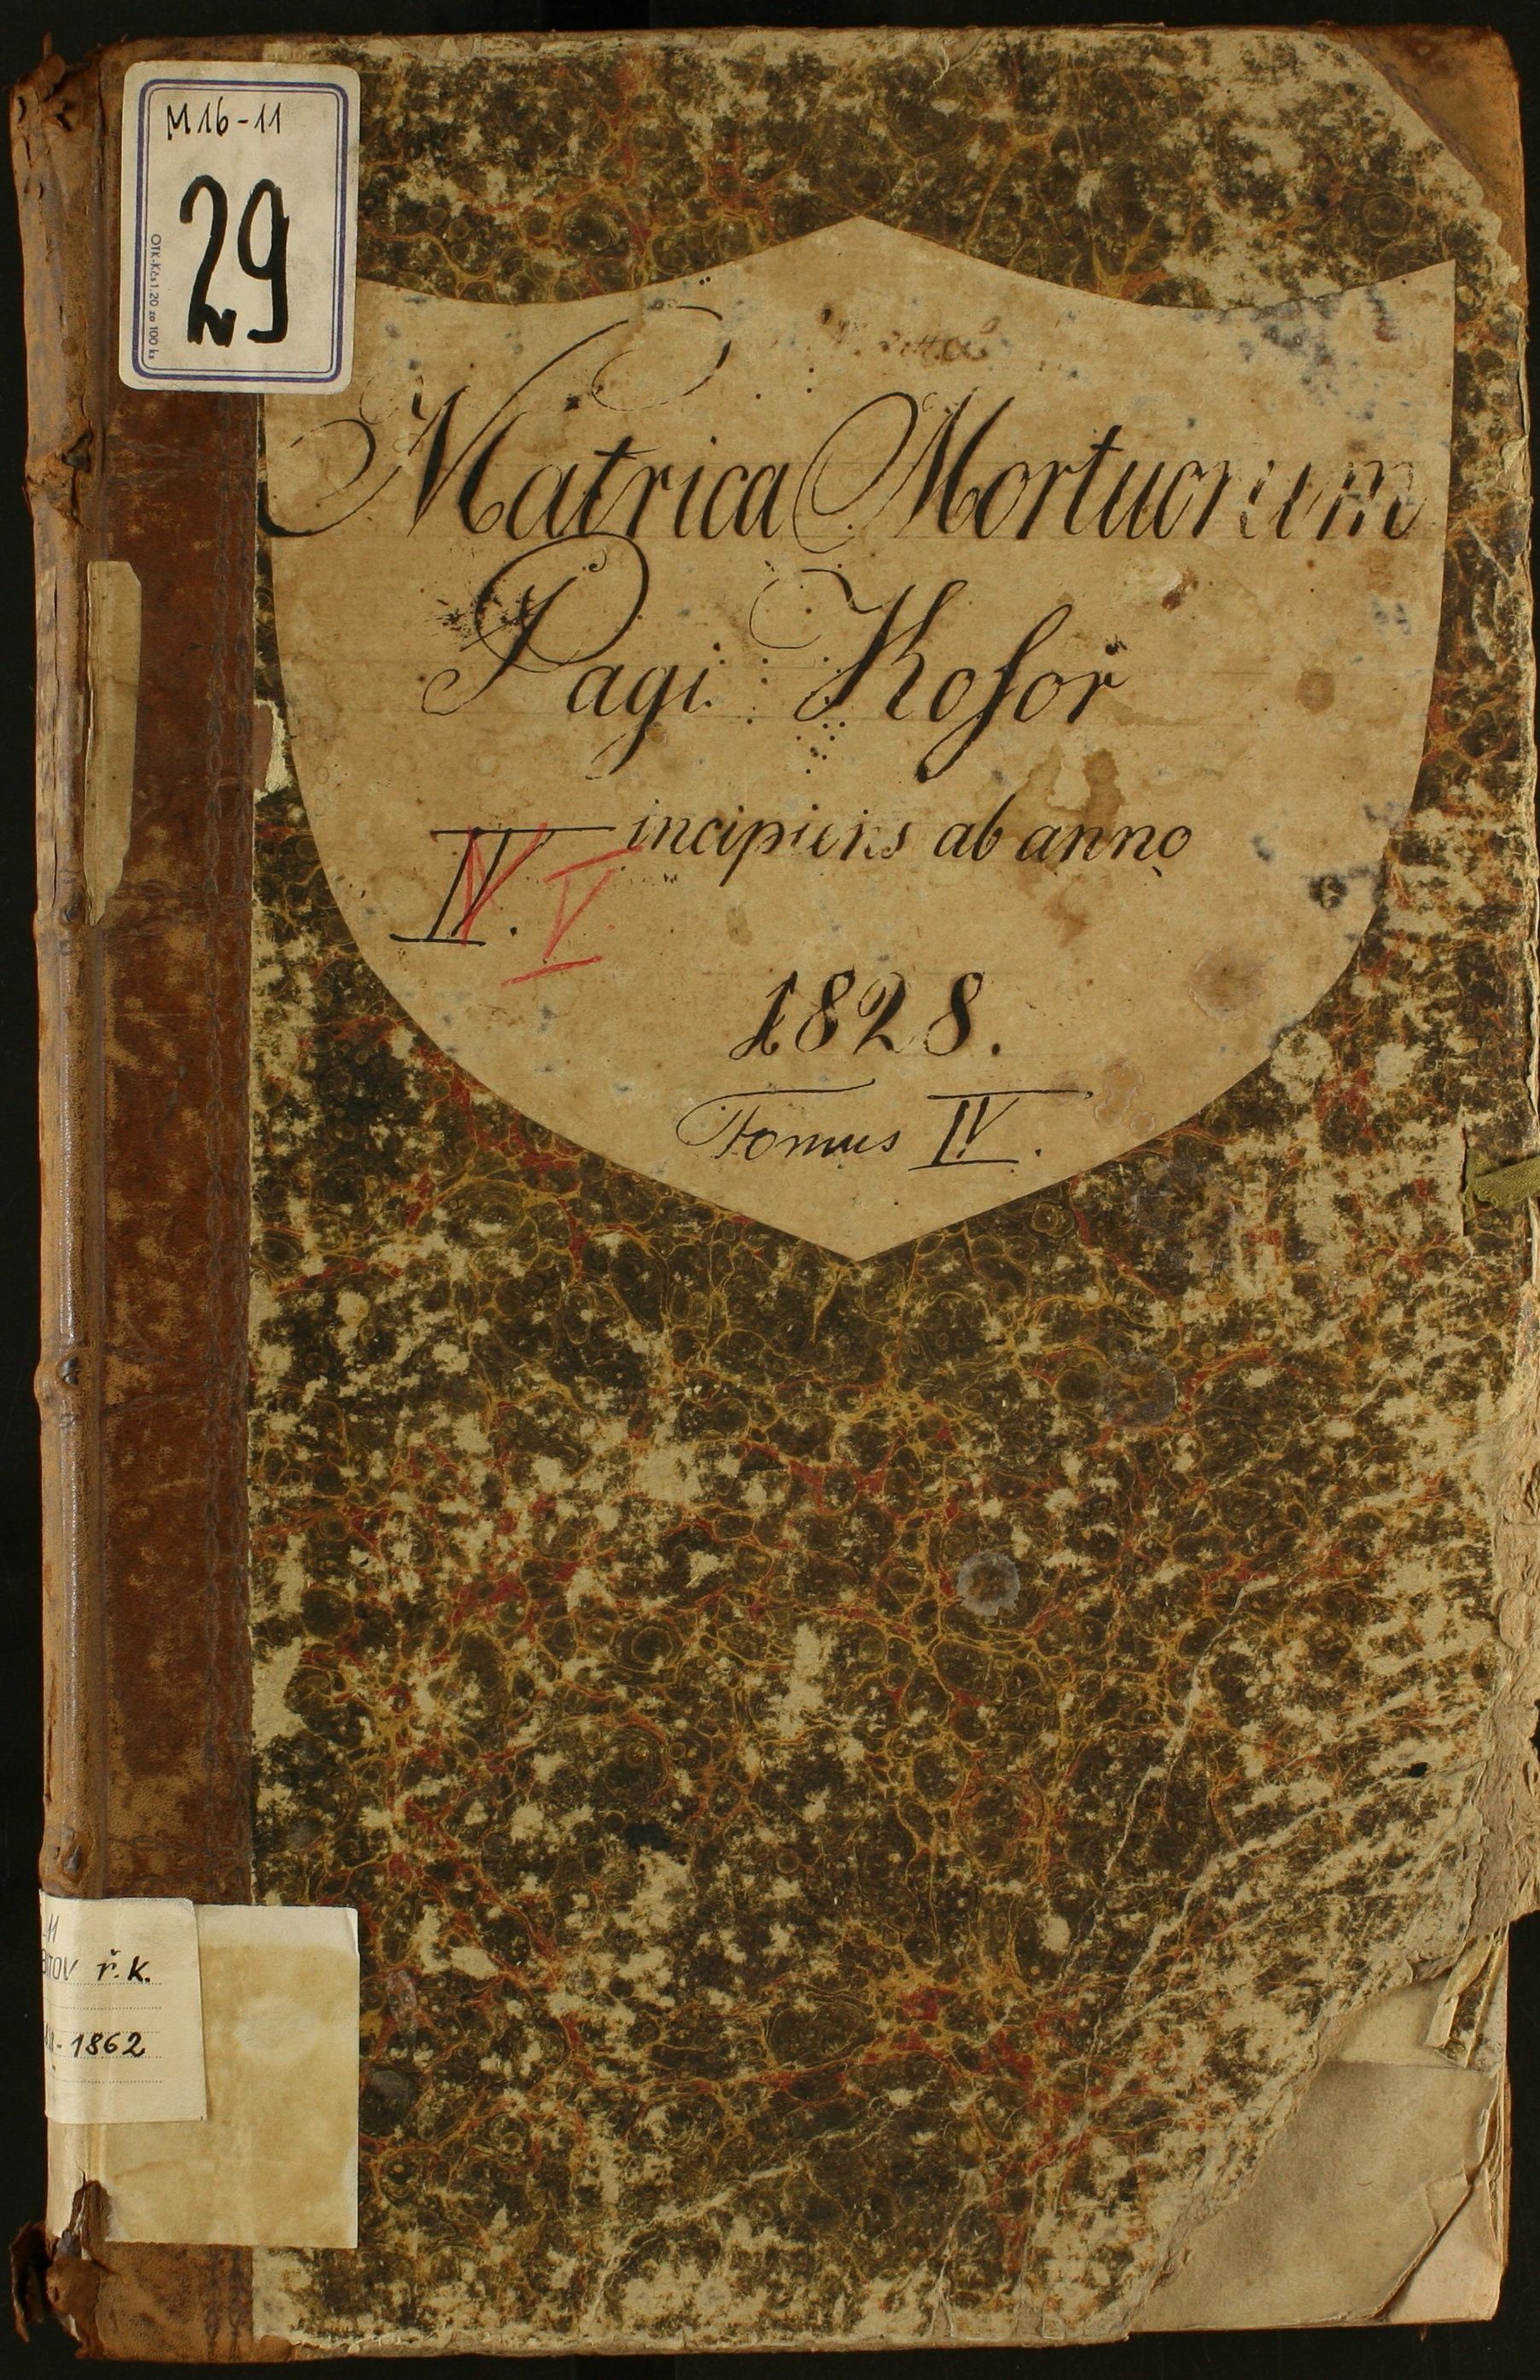 M16-11
29
OTK-Kčs 1.20 za 100 ks
Matrica Mortuorum
Pagi Kosoř
incipiens ab anno
IV. V.
1828.
Tomus IV.
-11
ř. k.
- 1862